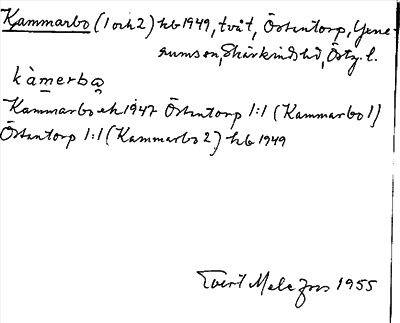 Kammarbo (1 och 2) hb 1949, tvåt, Östentorp, Gene-
rums sn, Skärkinds hd, Östg. l.
kàmerbo
Kammarbo ek 1947 Östentorp 1:1 (Kammarbo 1)
Östentorp 1:1 (Kammarbo 2) hb 1949
Evert Melefors 1955